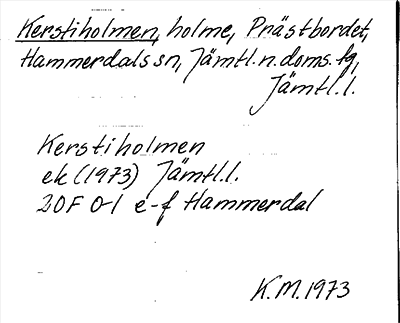 Kerstiholmen, holme, Prästbordet,
Hammerdals sn, Jämtl.n.doms.fg,
Jämtl.l.
Kerstiholmen
ek (1973) Jämtl.l.
20F 0-1 e-f Hammerdal
K.M. 1973